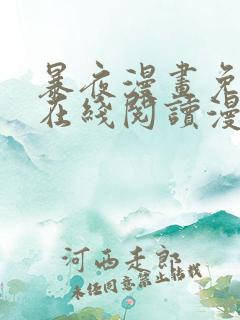 暴夜漫畫免
在綫閱讀漫
河西走郎
未经同意禁止转载